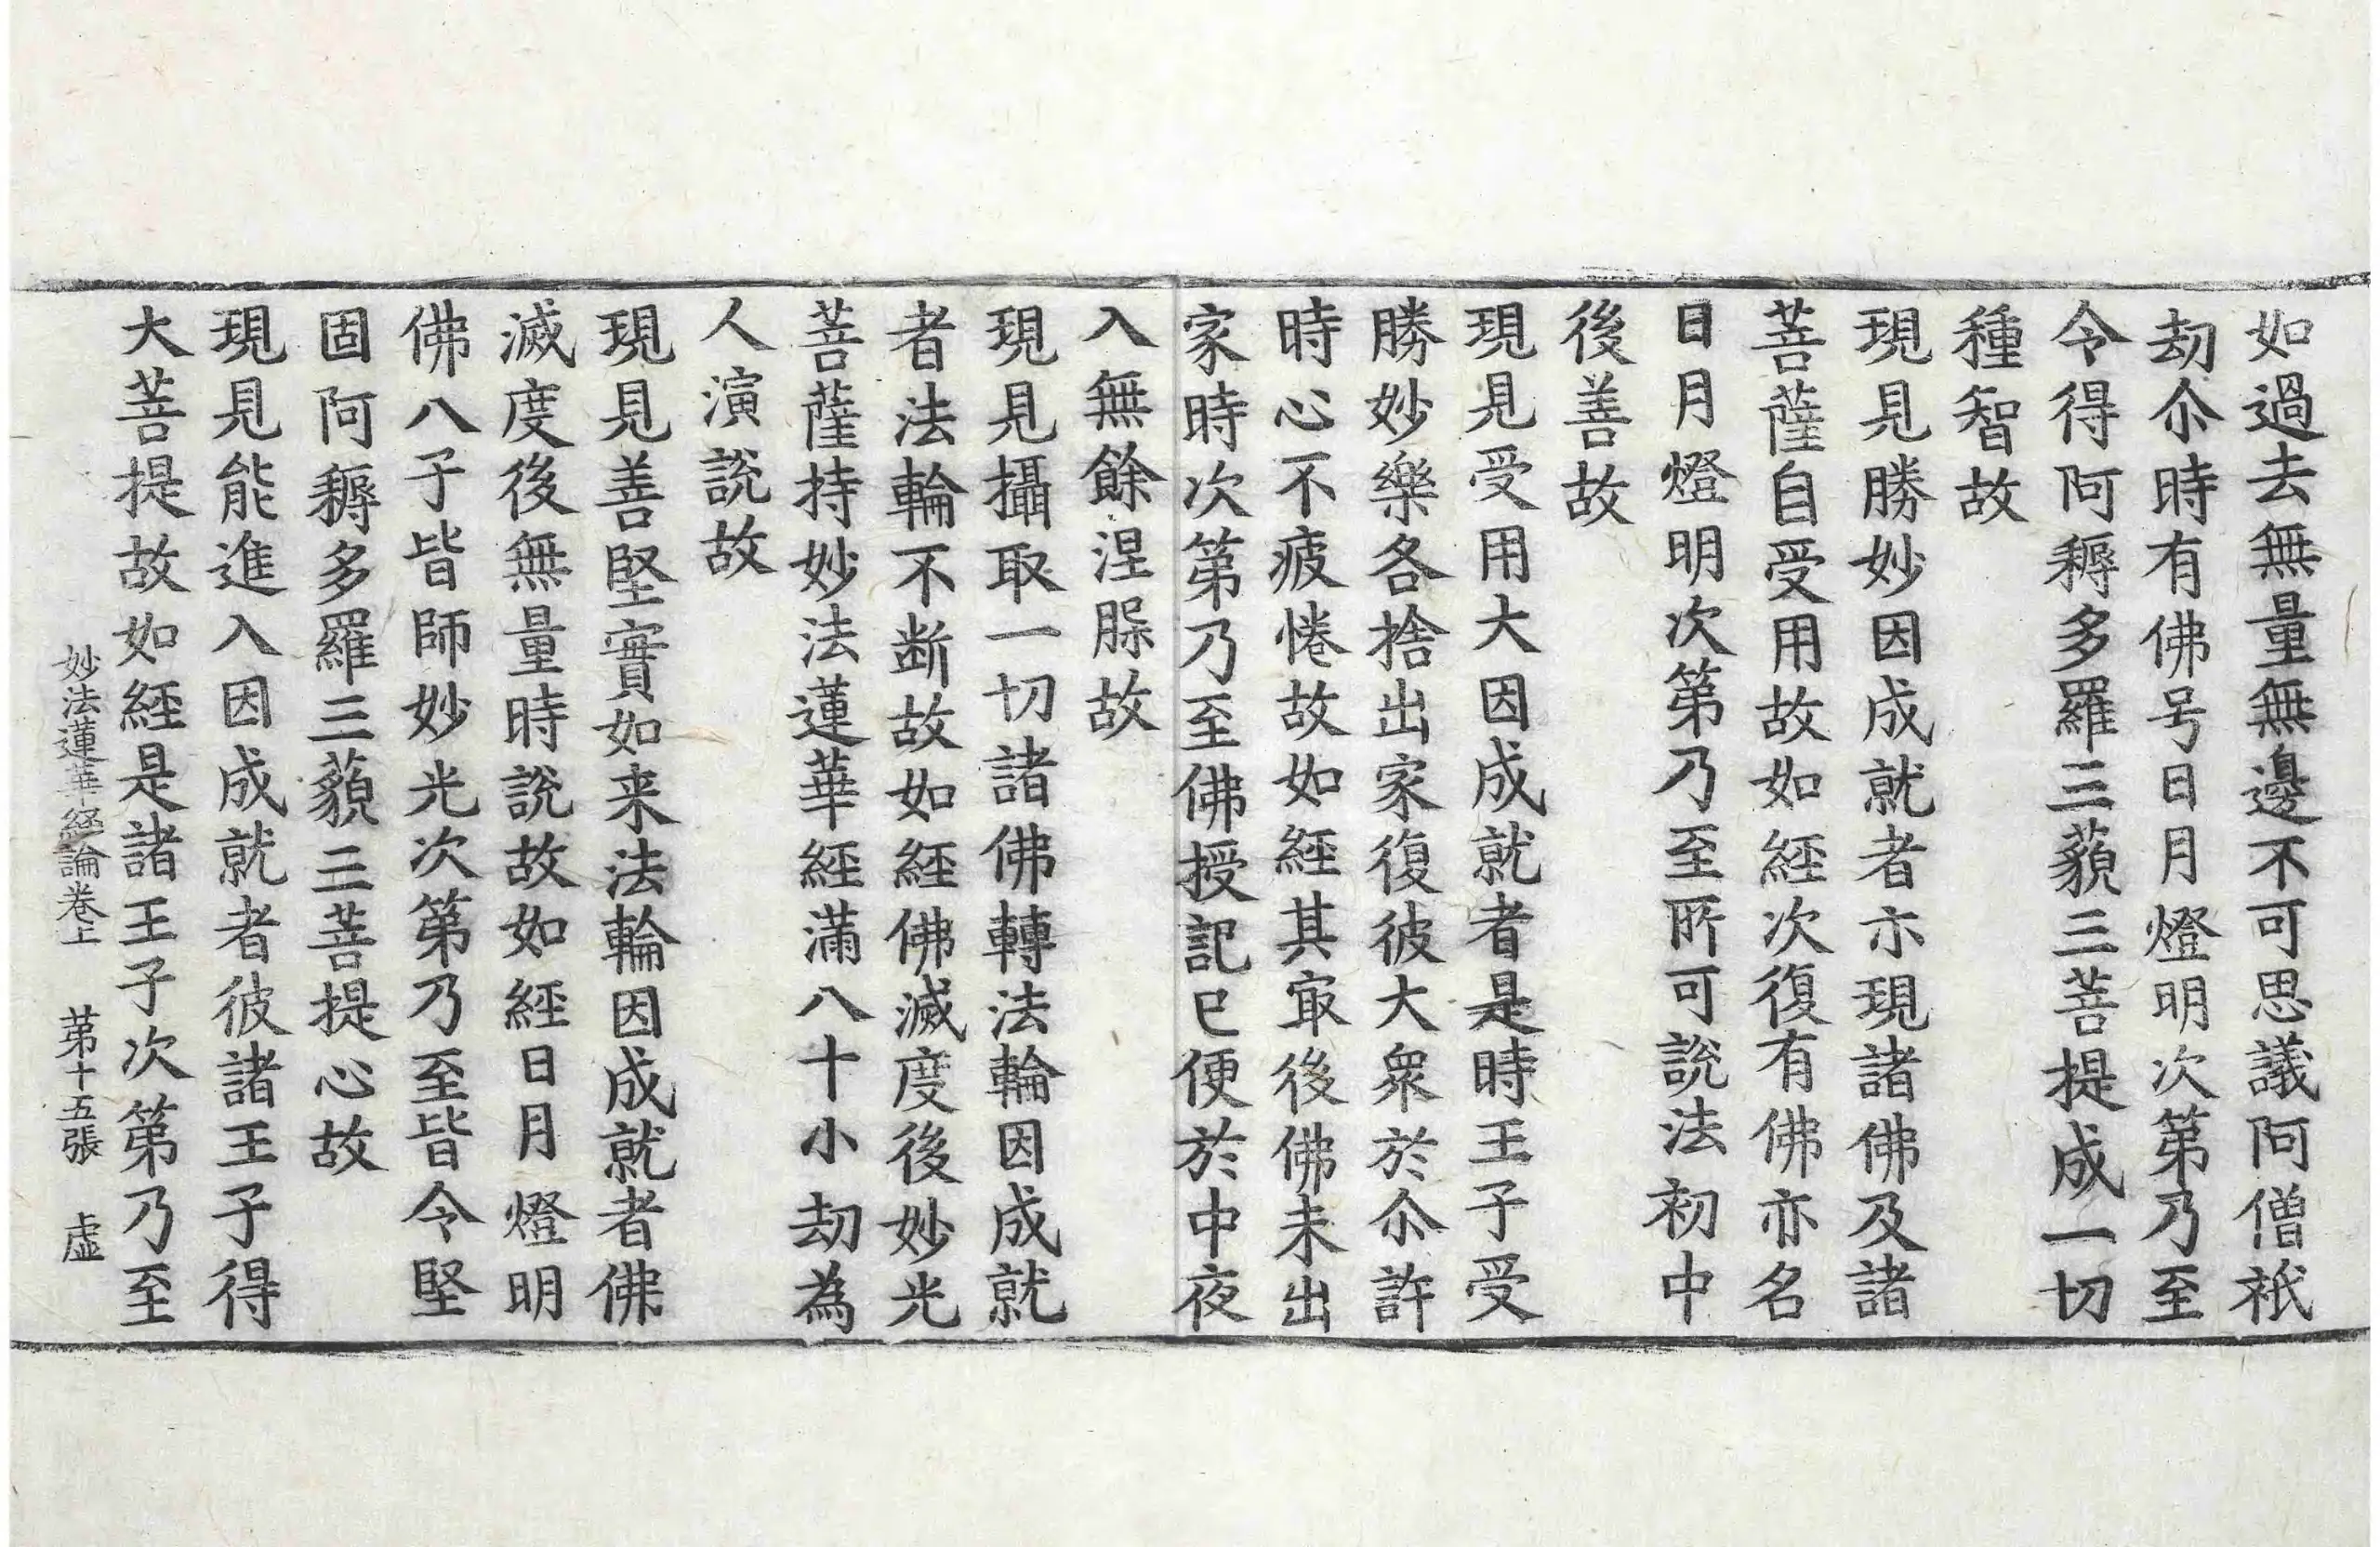 如過去無量無邊不可思議阿僧祇
劫尒時有佛号日月燈明次第乃至
令得阿耨多羅三藐三菩提成一切
種智故
現見勝妙因成就者亦現諸佛及諸
菩薩自受用故如經次復有佛亦名
日月燈明次第乃至所可說法初中
後善故
現見受用大因成就者是時王子受
勝妙樂各捨出家復彼大衆於尒許
時心不疲惓故如經其冣後佛未出
家時次第乃至佛授記已便於中夜
入無餘涅槃故
現見攝取一切諸佛轉法輪因成就
者法輪不断故如經佛滅度後妙光
菩薩持妙法蓮華經滿八十小劫為
人演說故
現見善堅實如来法輪因成就者佛
滅度後無量時說故如經日月燈明
佛八子皆師妙光次第乃至皆令堅
固阿耨多羅三藐三菩提心故
現見能進入因成就者彼諸王子得
大菩提故如經是諸王子次第乃至
妙法蓮華經論卷上 第十五張 虛